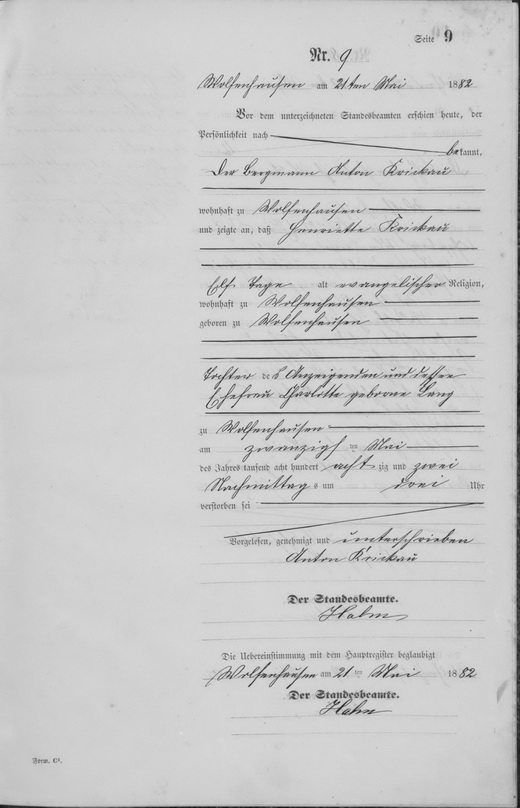 Seite 9
Nr. 9
Wolfenhausen am 21ten Mai 1882
Vor dem unterzeichneten Standesbeamten erschien heute, der
Persönlichkeit nach
bekannt,
Der Bergmann Anton Krickau
wohnhaft zu Wolfenhausen
und zeigte an, daß Henriette Krickau
Elf Tage alt evangelischer Religion,
wohnhaft zu Wolfenhausen
geboren zu Wolfenhausen
Tochter des Anzeigenden und dessen
Ehefrau Charlotte geborne Lang
zu Wolfenhausen
am zwanzigsten Mai
des Jahres tausend acht hundert achtzig und zwei
Nachmittags um drei Uhr
verstorben sei
Vorgelesen, genehmigt und unterschrieben
Anton Krickau
Der Standesbeamte.
Hahn
Die Uebereinstimmung mit dem Hauptregister beglaubigt
Wolfenhausen am 21ten Mai 1882
Der Standesbeamte.
Hahn
Form. C¹.